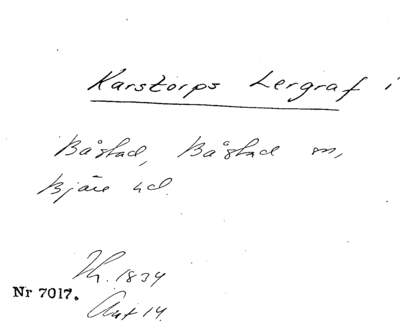 Karstorps Lergraf i
Båstad, Båstad sn,
Bjäre hd.
Th. 1834
Nr 7017.
Ant 14.